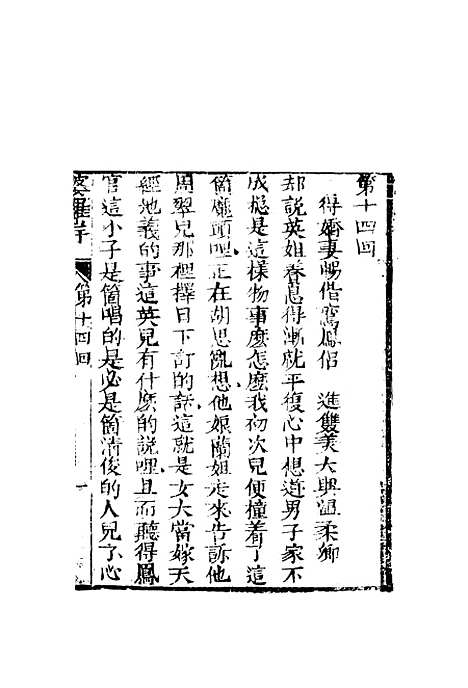 第十四回
得嬌妻暢偕鸞鳳侶　進雙美大興溫柔鄉
却說英姐春蕙得漸就平復心中想道男子家不
成摠是這樣物事麼怎麼我初次兒便撞着了這
箇癩頭哩正在胡思亂想他娘蘭姐走來告訴他
周翠兒那裡擇日下訂的話這就是女大當嫁天
經地義的事這英兒有什麽的說哩且而聽得鳳
官這小子是箇唱的是必是箇清俊的人兒了心
第十四回